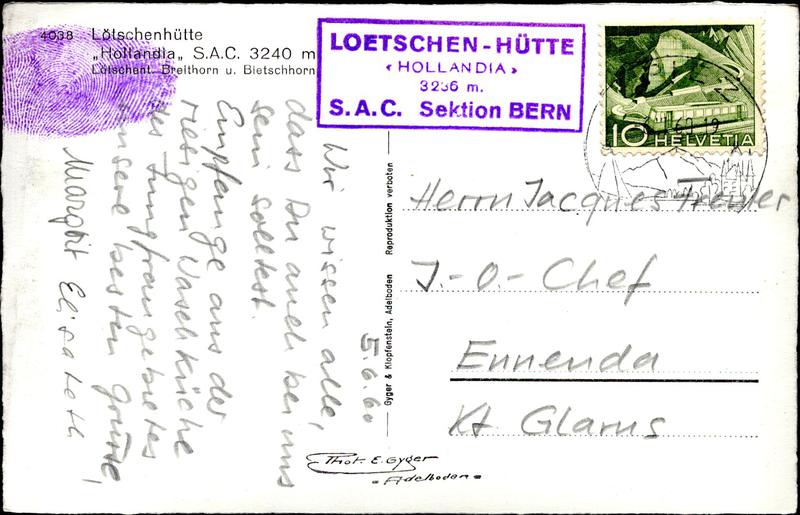 4038 Lötschenhütte
„Hollandia„ S.A.C. 3240 m
Lötschent. Breithorn u. Bietschhorn
LOETSCHEN-HÜTTE
‹ HOLLANDIA ›
3236 m.
S.A.C. Sektion BERN
10 HELVETIA
5.6.60
Wir wissen alle,
dass Du auch bei uns
sein solltest.
Empfange aus der
riesigen Waschküche
des Jungfraugebietes
unsere besten Grüsse,
Margrit Elisabeth
Reproduktion verboten
Gyger & Klopfenstein, Adelboden
Herrn Jacques Trümpler
J.-O.-Chef
Ennenda
Kt Glarus
Phot. E. Gyger
Adelboden